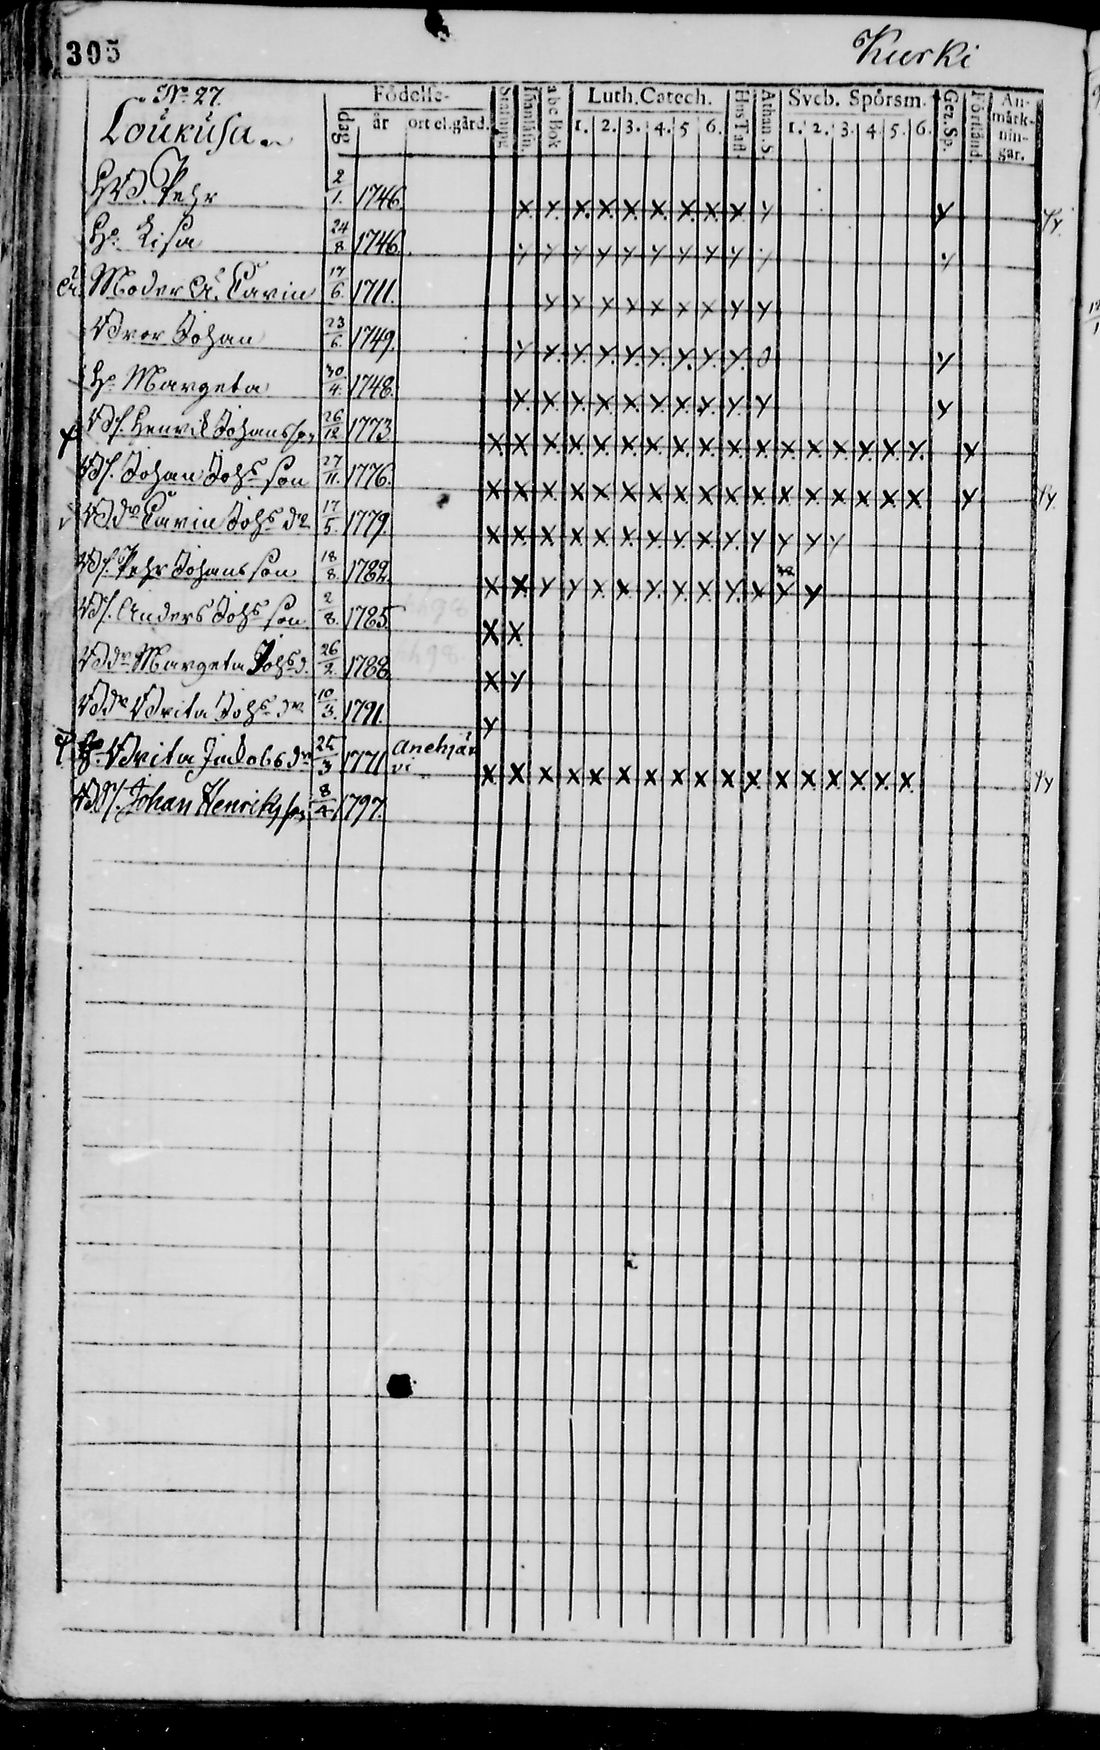 305 Kurki
No. 27.
Loukusa.
Födelse-
dag år ort el. gård.
Stafning. Innanläsn. abc Bok
Luth. Catech.
1. 2. 3. 4. 5 6.
Hus Tafl. Athan. S.
Sveb. Spörsm.
1. 2. 3. 4. 5. 6.
Gez. Sp. Förstånd.
An-
märk-
nin-
gar.
Pehr 2/1. 1746. x y. x. x. x x. x. x x y y
H:o Lisa 24/8 1746. y y y y y y y y y y y
Moder Carin 17/6. 1711. y y x x x x x y y
Bror Johan 23/6. 1749. y y. y. y. y. y. y. y. y. y
H:o Margeta 30/4. 1748. y. x. x. x. x. y. x. y. y. y y
Henrik Johansson 26/12 1773 x x x. x. x. x. x. x. x. x. x x x x y. x. y. y
Johan Johs son 27/11. 1776. x x x x x x x x x x x x x x x x x y
Carin Johs dr 17/5. 1779. x x. x. x x x. y. y. x y. y y y y
Pehr Johansson 18/8. 1782 x x y y x x y. x y. x y y
Anders Johs son 2/8. 1785. x x.
Margeta Johs d. 26/2. 1788. x y
Brita Johs dr 10/3. 1791. y
Brita Jacobs dr 25/3 1771 x x x x x x x x x x x x x x x x
Johan Henriksson 8/4 1797.